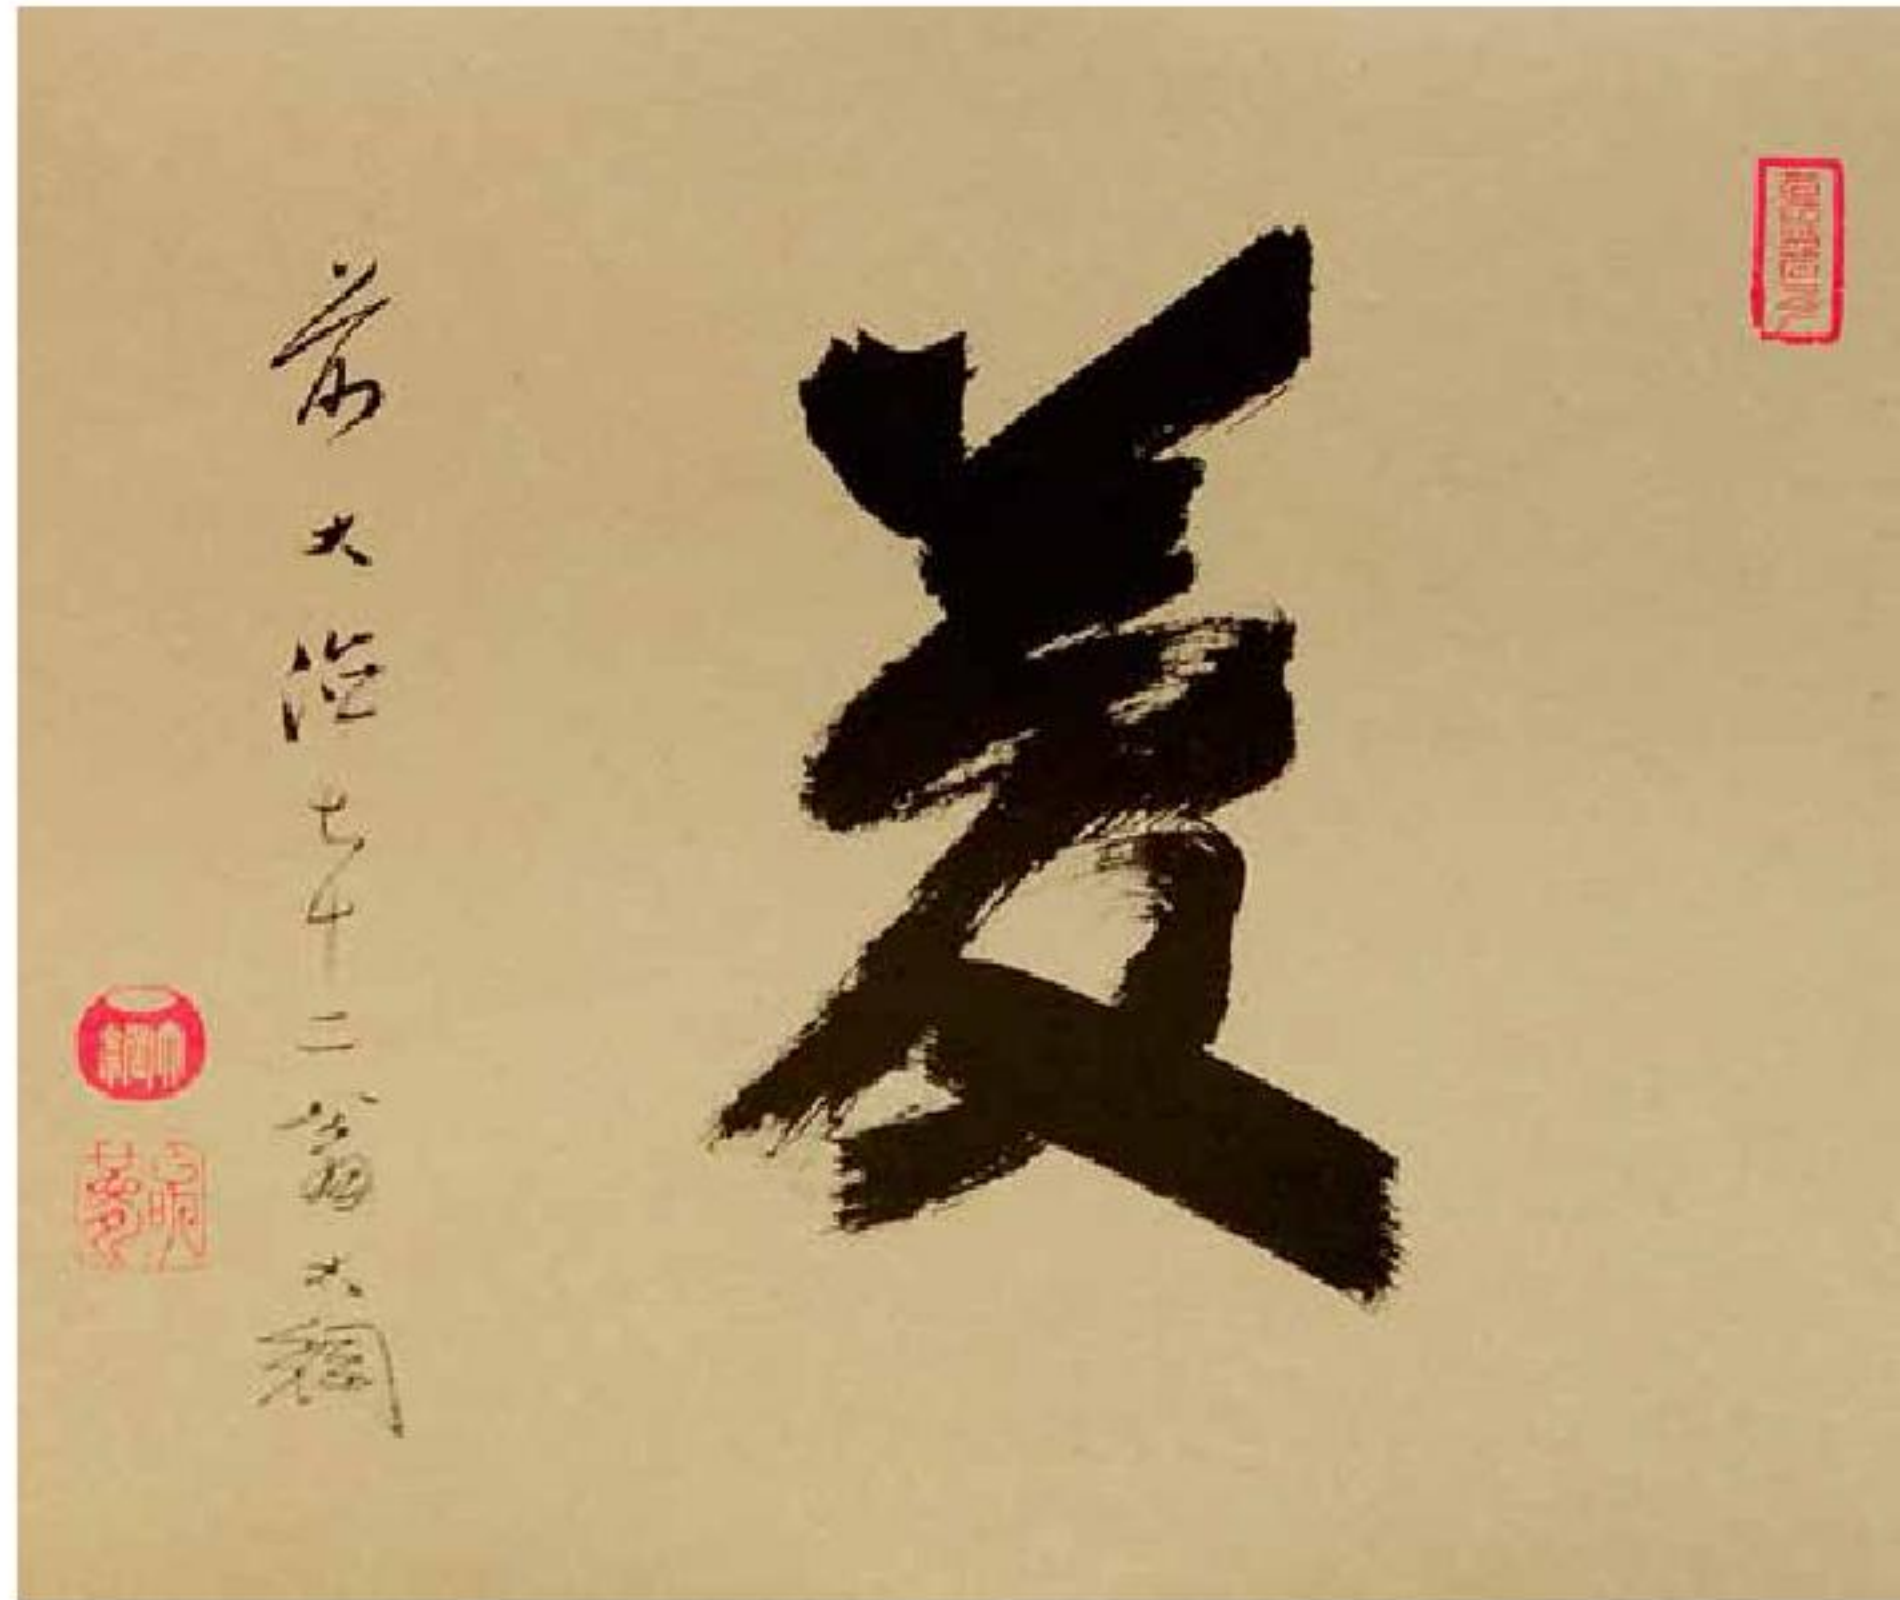 夢
前大徳七十二翁大綱